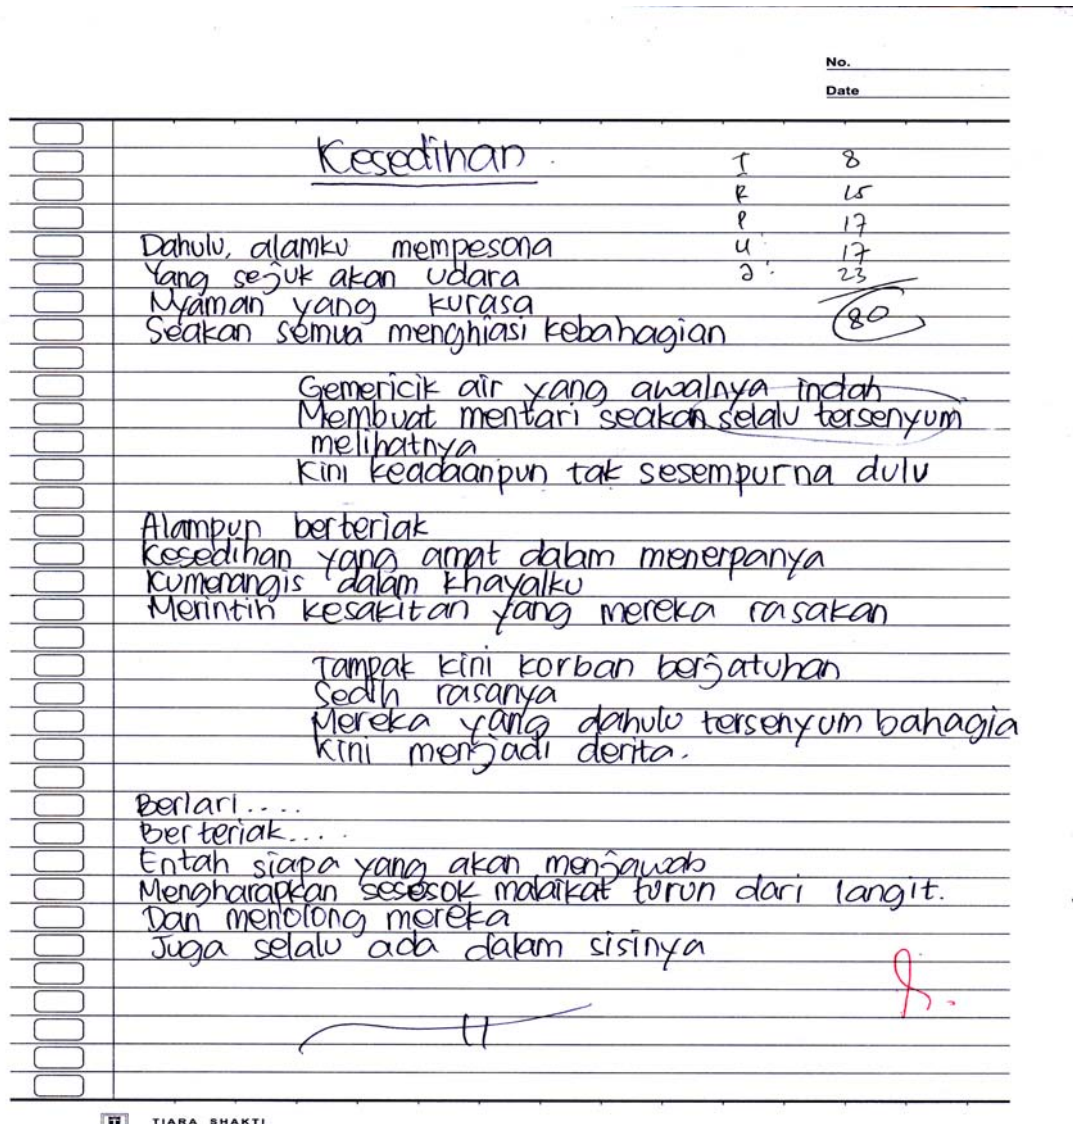 No.
Date
Kesedihan
I 8
R 15
P 17
U : 17
a : 23
80
Dahulu, alamku mempesona
Yang sejuk akan udara
Nyaman yang kurasa
Seakan semua menghiasi kebahagian
Gemericik air yang awalnya indah
Membuat mentari seakan selalu tersenyum
melihatnya
Kini keadaanpun tak sesempurna dulu
Alampun berteriak
Kesedihan yang amat dalam menerpanya
Kumenangis dalam khayalku
Merintih kesakitan yang mereka rasakan
Tampak kini korban berjatuhan
Sedih rasanya
Mereka yang dahulu tersenyum bahagia
Kini menjadi derita.
Berlari....
Berteriak....
Entah siapa yang akan menjawab
Mengharapkan sesesok malaikat turun dari langit.
Dan menolong mereka
Juga selalu ada dalam sisinya
TIARA SHAKTI